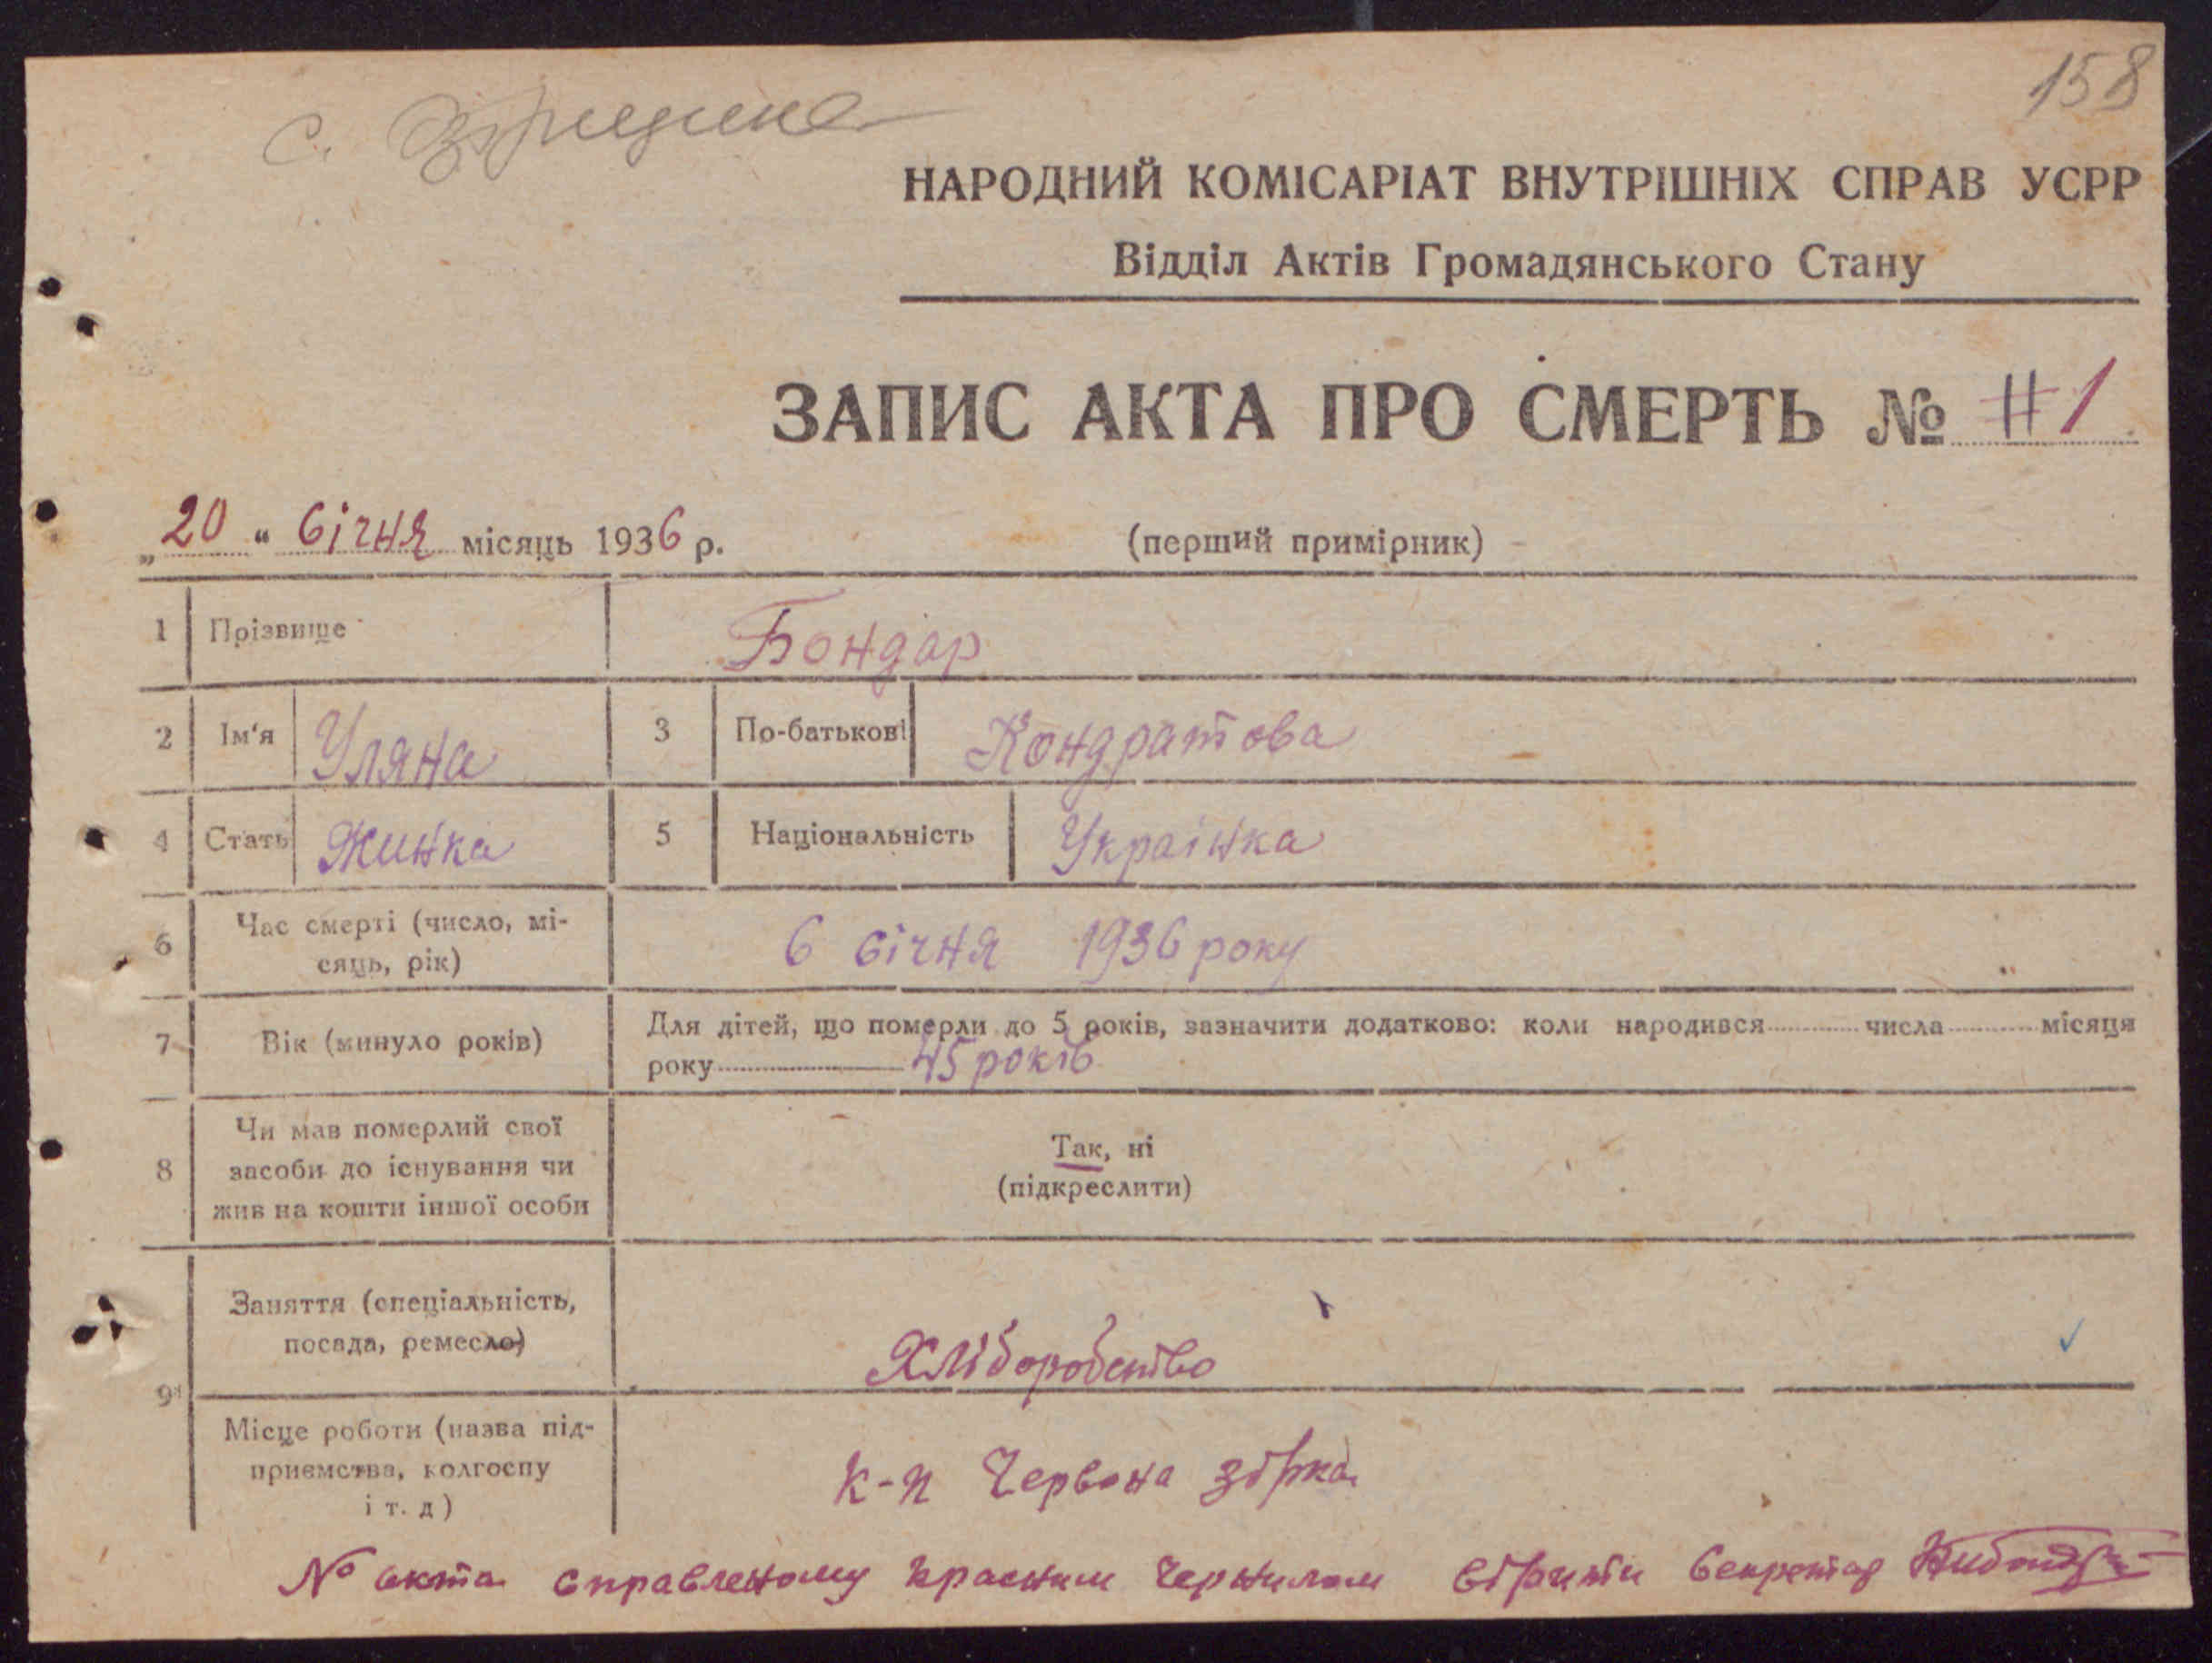 158
с.
НАРОДНИЙ КОМІСАРІАТ ВНУТРІШНІХ СПРАВ УСРР
Відділ Актів Громадянського Стану
ЗАПИС АКТА ПРО СМЕРТЬ № #1
„20“ січня місяць 1936 р. (перший примірник)
1 Прізвище Бондар
2 Ім'я Уляна 3 По-батькові Кондратова
4 Стать Жинка 5 Національність Українка
6 Час смерті (число, мі-
сяць, рік) 6 січня 1936 року
7 Вік (минуло років) Для дітей, що померли до 5 років, зазначити додатково: коли народився числа місяця
року 45 років
8 Чи мав померлий свої
засоби до існування чи
жив на кошти іншої особи
Так, ні
(підкреслити)
9 Заняття (спеціальність,
посада, ремесло) Хліборобство
Місце роботи (назва під-
приємства, колгоспу
і т. д) к-п Червона зірка
№ акта справленому красним чернилом вірити Секретар